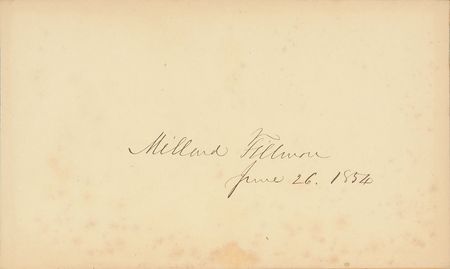 Millard Fillmore
June 26. 1854